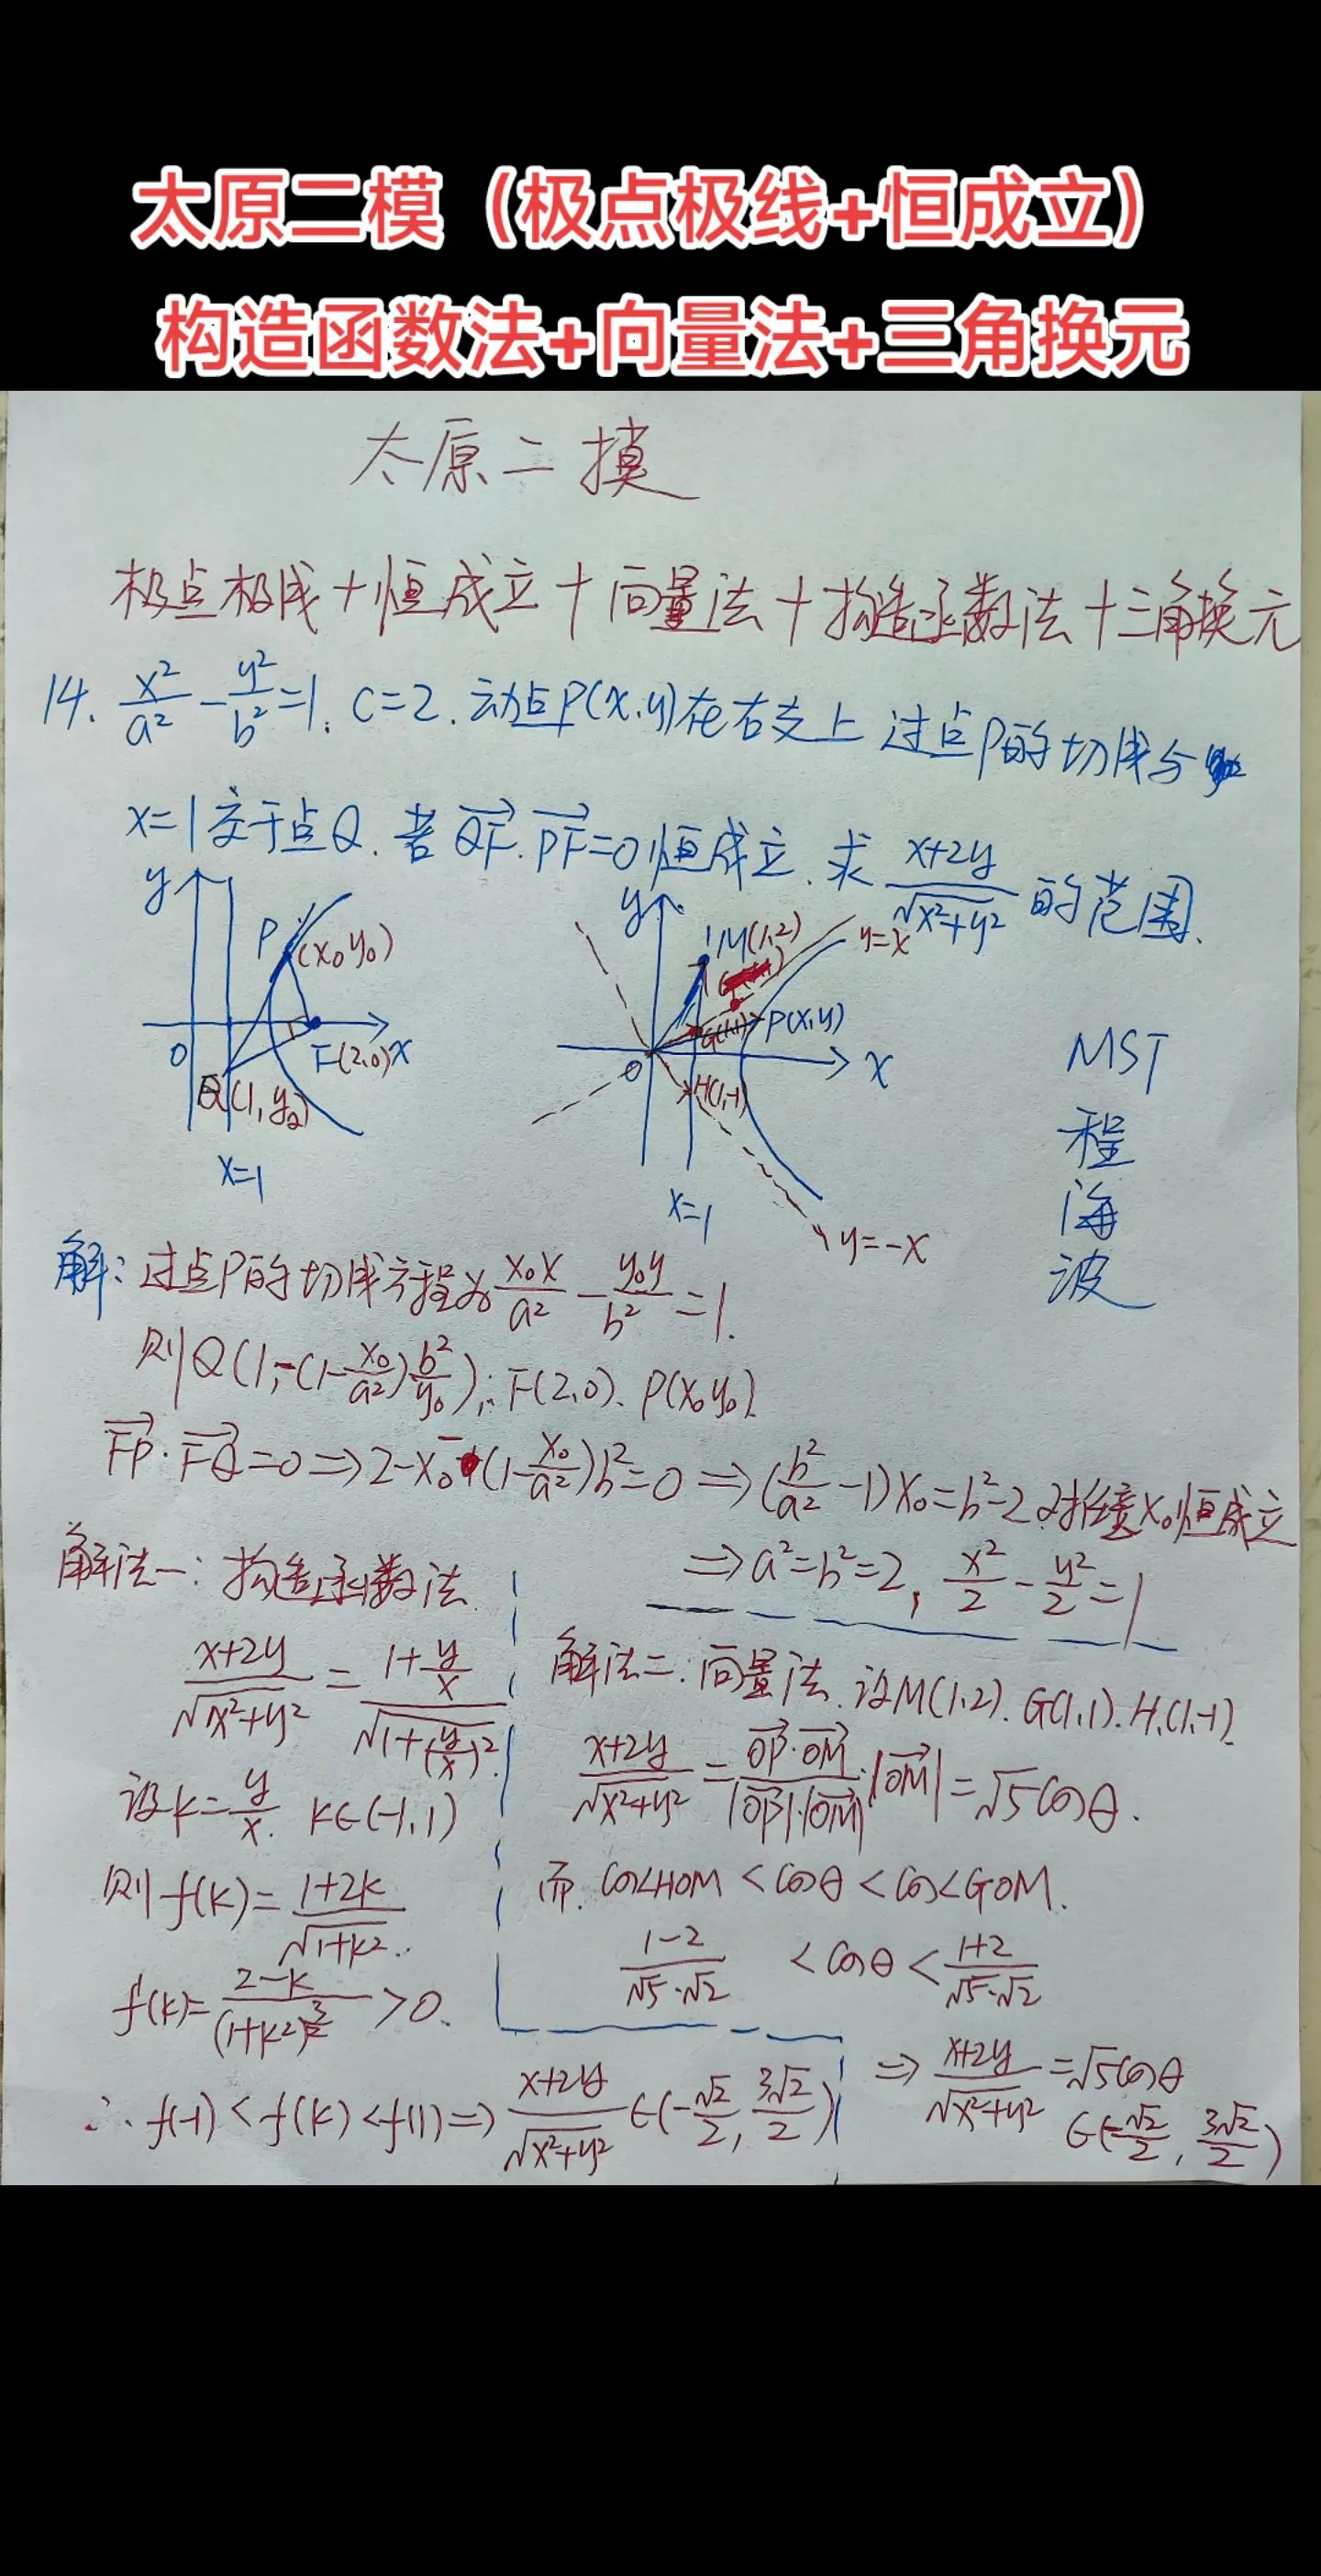 太原二模（极点极线+恒成立）
构造函数法+向量法+三角换元
太原二摸
极点极线+恒成立+向量法+构造函数法+三角换元
14. x²/a² - y²/b² = 1. c=2. 动点P(x,y)在右支上 过点P的切线与
x=1交于点Q. 若 QF→·PF→=0恒成立. 求 (x+2y)/√(x²+y²) 的范围.
y P (x₀ y₀) O F(2,0) x Q(1, y₂) x=1
y M(1,2) y=x G(1,1) P(x,y) O x H(1,-1) x=1 y=-x
MST
程
海
波
解: 过点P的切线方程为 x₀x/a² - y₀y/b² = 1.
则Q(1, -(1-x₀/a²)b²/y₀), ∵F(2,0). P(x₀y₀)
FP→·FQ→=0 ⇒ 2-x₀-(1-x₀/a²)b²=0 ⇒ (b²/a² -1)x₀=b²-2 对任意x₀恒成立
⇒ a²=b²=2, x²/2 - y²/2 = 1
解法一: 构造函数法
(x+2y)/√(x²+y²) = (1+y/x)/√(1+(y/x)²).
设k=y/x. k∈(-1,1)
则f(k)=(1+2k)/√(1+k²).
f'(k)=(2-k)/(1+k²)^(3/2) >0.
∴ f(-1)<f(k)<f(1) ⇒ (x+2y)/√(x²+y²) ∈(-√2/2, 3√2/2)
解法二: 向量法. 设M(1,2). G(1,1). H(1,-1)
(x+2y)/√(x²+y²) = (OP→·OM→)/(|OP→|·|OM→|)·|OM→| = √5cosθ.
而 cos∠HOM < cosθ < cos∠GOM.
(1-2)/(√5·√2) < cosθ < (1+2)/(√5·√2)
⇒ (x+2y)/√(x²+y²) = √5cosθ
∈(-√2/2, 3√2/2)